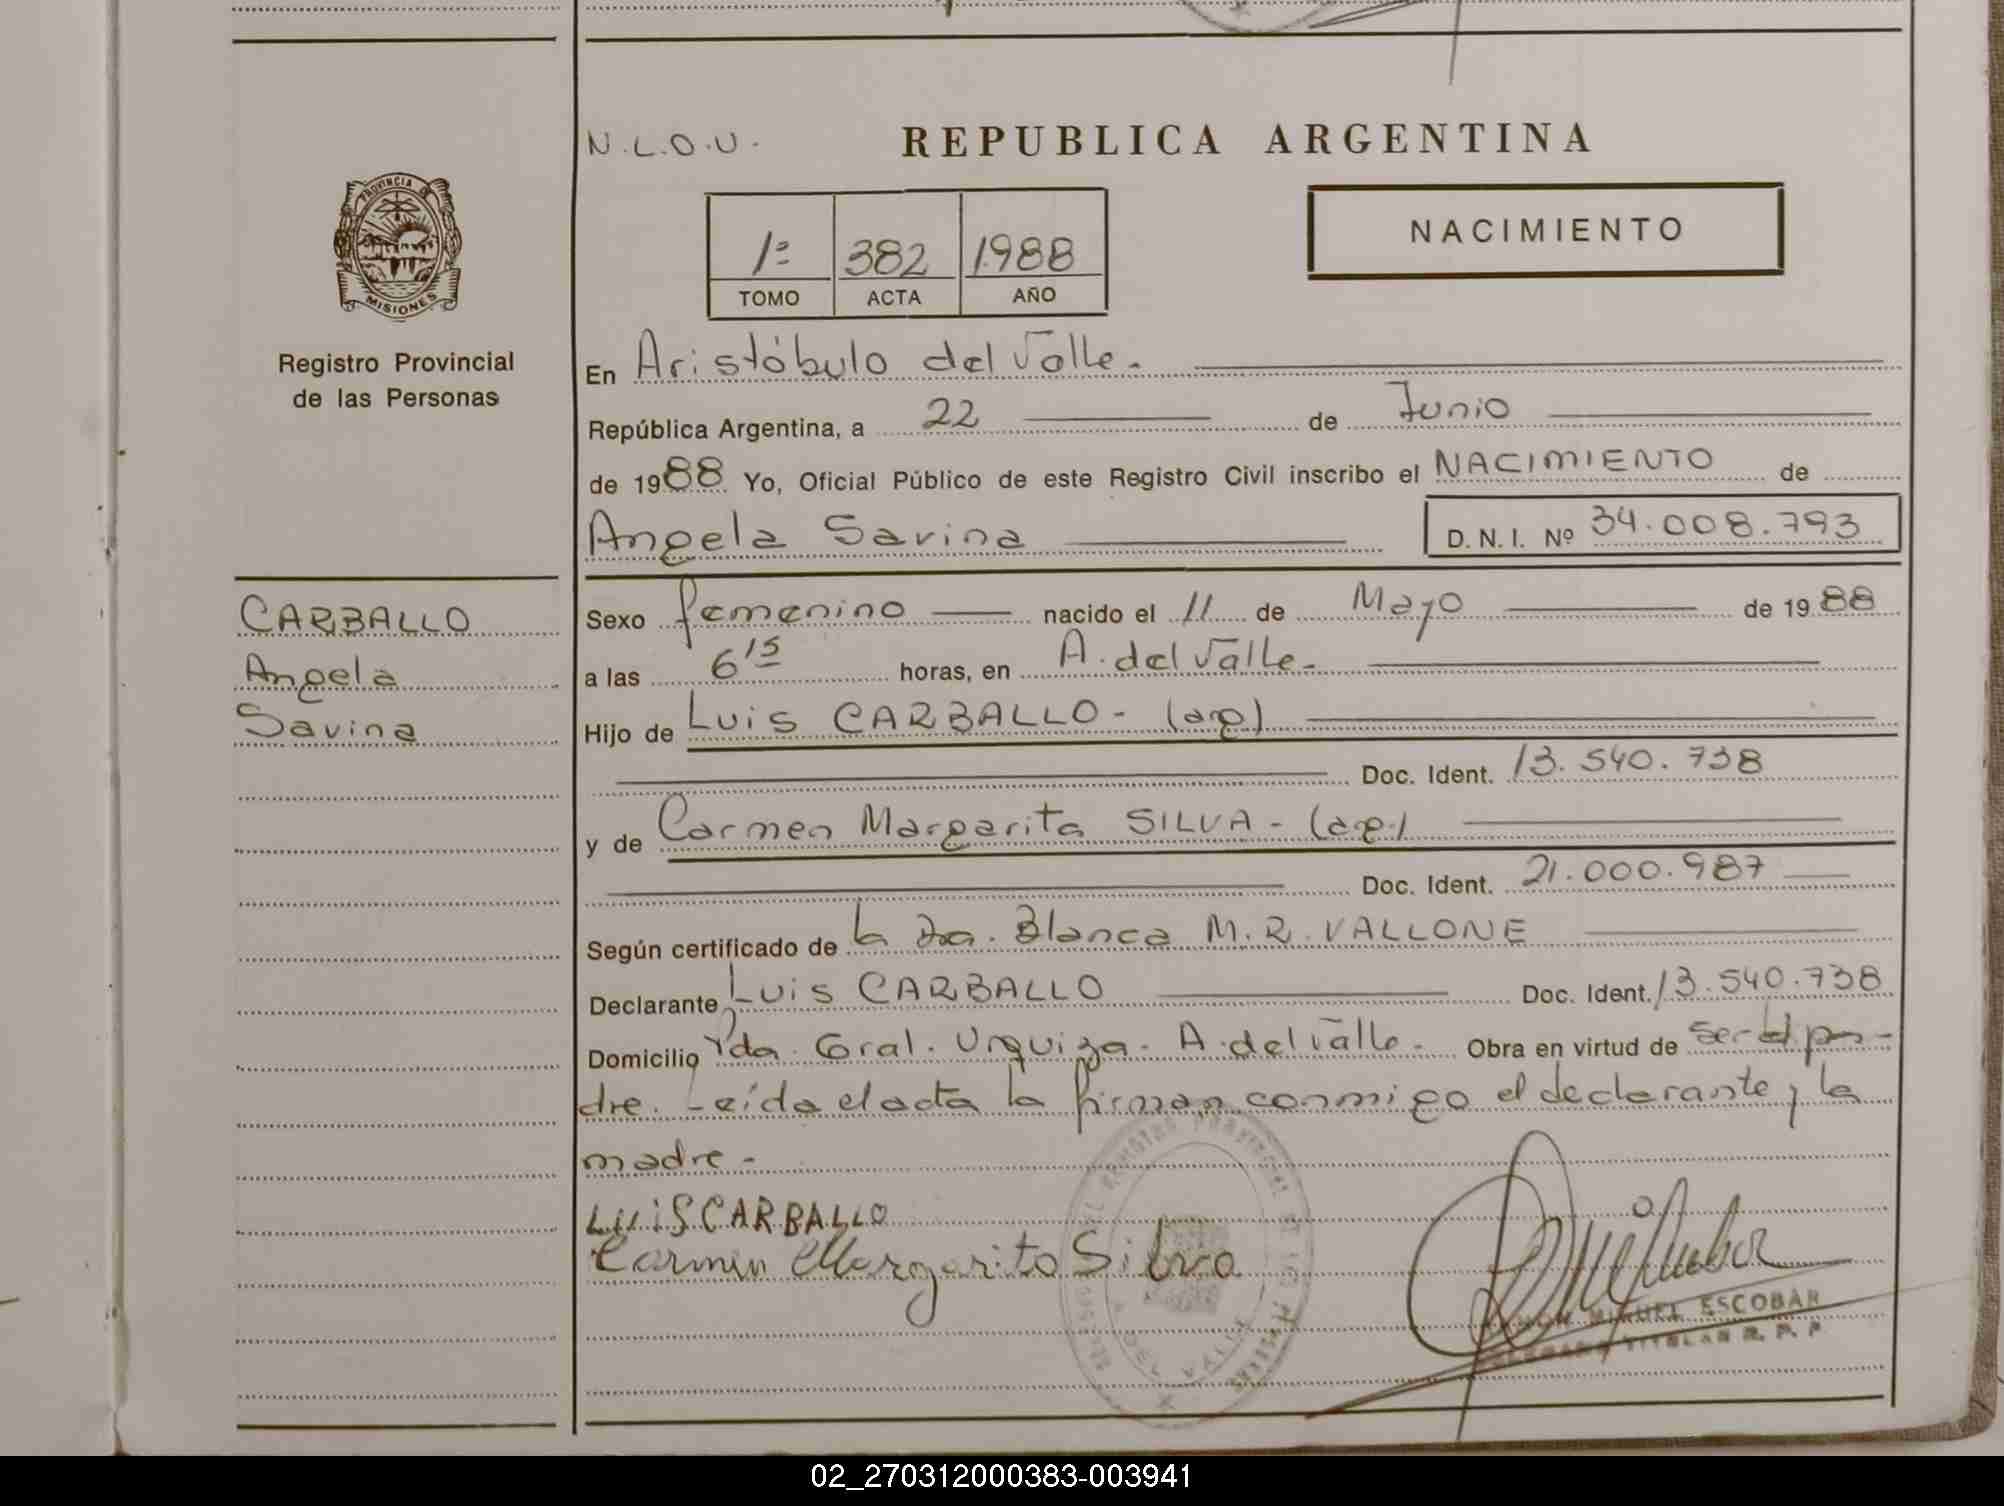 N.L.O.U.
REPUBLICA ARGENTINA
PROVINCIA DE
MISIONES
1º 382 1988
TOMO ACTA AÑO
NACIMIENTO
Registro Provincial
de las Personas
En Aristóbulo del Valle.
República Argentina, a 22 de Junio
de 1988 Yo, Oficial Público de este Registro Civil inscribo el NACIMIENTO de
Angela Savina D.N.I. Nº 34.008.793
CARBALLO
Angela
Savina
Sexo femenino nacido el 11 de Mayo de 1988
a las 6 15 horas, en A. del Valle.
Hijo de Luis CARBALLO - (arg)
Doc. Ident. 13.540.738
y de Carmen Margarita SILVA - (arg.)
Doc. Ident. 21.000.987
Según certificado de la Dra. Blanca M.R. VALLONE
Declarante Luis CARBALLO Doc. Ident. 13.540.738
Domicilio Pda. Gral. Urquiza. A. del Valle. Obra en virtud de ser el pa-
dre. Leída el acta la firman conmigo el declarante y la
madre.-
LUIS CARBALLO
Carmen Margarita Silva
MIGUEL ESCOBAR
TITULAR R. P. P.
02_270312000383-003941